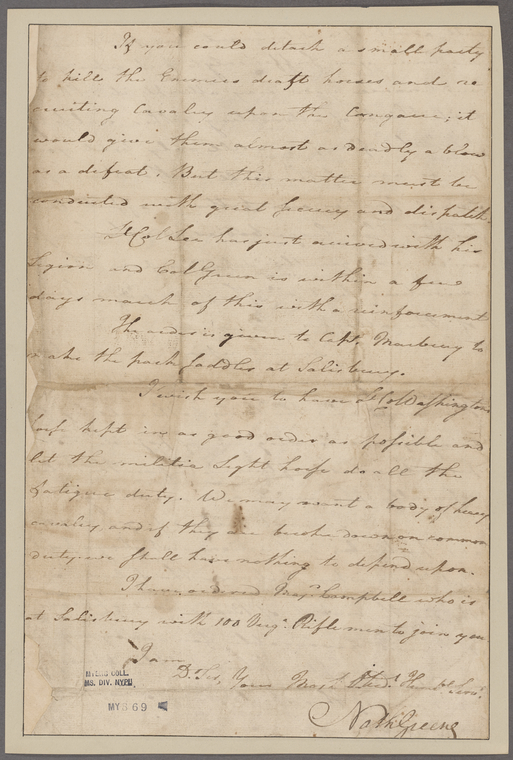 If you could detach a small party
to kill the Enemies draft horses and re
cruiting Cavalry upon the Congaree; it
would give them almost as deadly a blow
as a defeat. But this matter must be
conducted with great secrecy and dispatch.
Lt Col Lee has just arrived with his
Legion and Col Green is within a few
days march of this with a reinforcement
The order is given to Capt. Marbury to
make the pack saddles at Salisbury.
I wish you to have Lt Col Washingtons
horse kept in as good order as possible and
let the militia Light horse do all the
fatigue duty. We may want a body of heavy
cavalry and if they are broke down on common
duty we shall have nothing to depend upon.
I have ordered Majr Campbell who is
at Salisbury with 100 Virga. Rifle men to join you
I am
Dr Sir, Your Most Obedt. Humbl Servt.
Nath Greene
MYERS COLL.
MS. DIV. NYPL
MY S 69